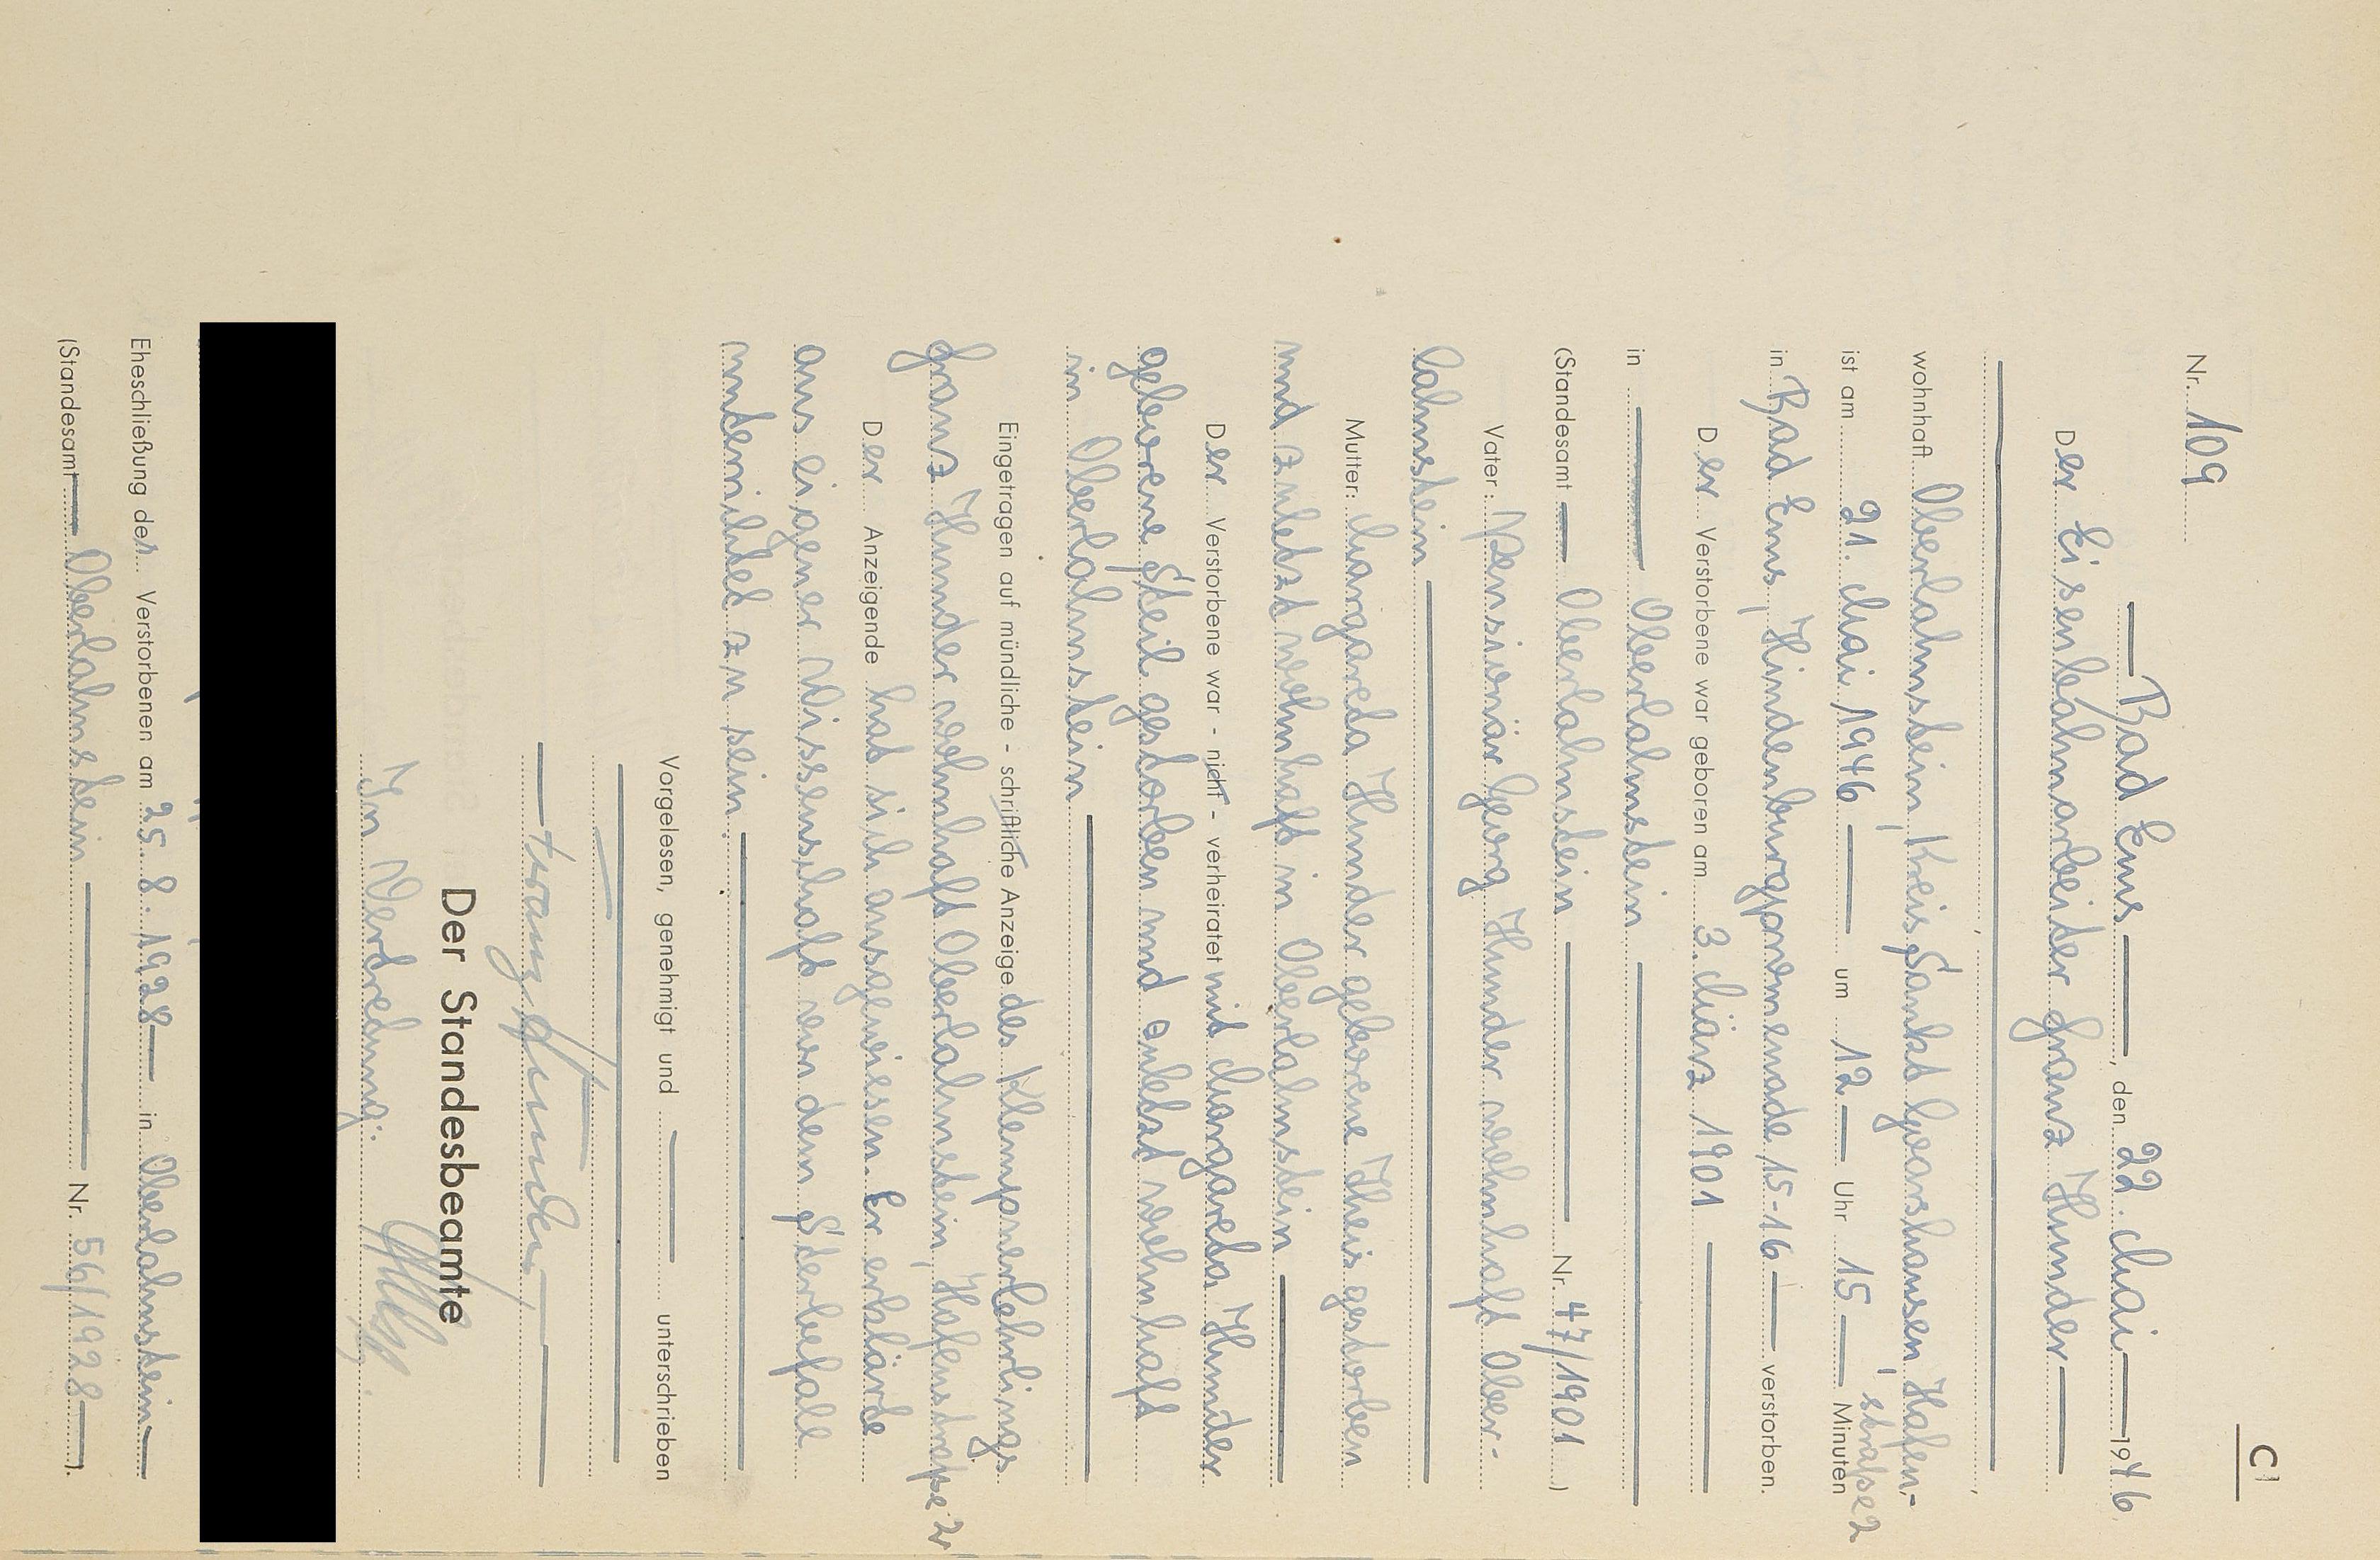 C1
Nr. 109
— Bad Ems —, den 22. Mai — 1946
Der Eisenbahnarbeiter Franz Hunder —
wohnhaft Oberlahnstein, Kreis Sankt Goarshausen, Hafen-
straße 2
ist am 21. Mai 1946 — um 12 — Uhr 15 — Minuten
in Bad Ems, Hindenburgpromenade 15-16 — verstorben.
Der Verstorbene war geboren am 3. März 1901 —
in — Oberlahnstein —
(Standesamt — Oberlahnstein — Nr. 47/1901)
Vater: Pensionär Georg Hunder wohnhaft Ober-
lahnstein —
Mutter: Margareta Hunder geborene Theis gestorben
und zuletzt wohnhaft in Oberlahnstein —
Der Verstorbene war - nicht - verheiratet mit Margareta Hunder
geborene Steil gestorben und zuletzt wohnhaft
in Oberlahnstein —
Eingetragen auf mündliche - schriftliche Anzeige des Klempnerlehrlings
Franz Hunder wohnhaft Oberlahnstein, Hafenstraße 2
Der Anzeigende hat sich ausgewiesen. Er erklärde
aus eigener Wissenschaft von dem Sterbefall
unterrichtet zu sein. —
Vorgelesen, genehmigt und — unterschrieben
— Franz Hunder —
Der Standesbeamte
In Vertretung:
Eheschließung des Verstorbenen am 25. 8. 1928 — in Oberlahnstein —
(Standesamt — Oberlahnstein — Nr. 56/1928 —).